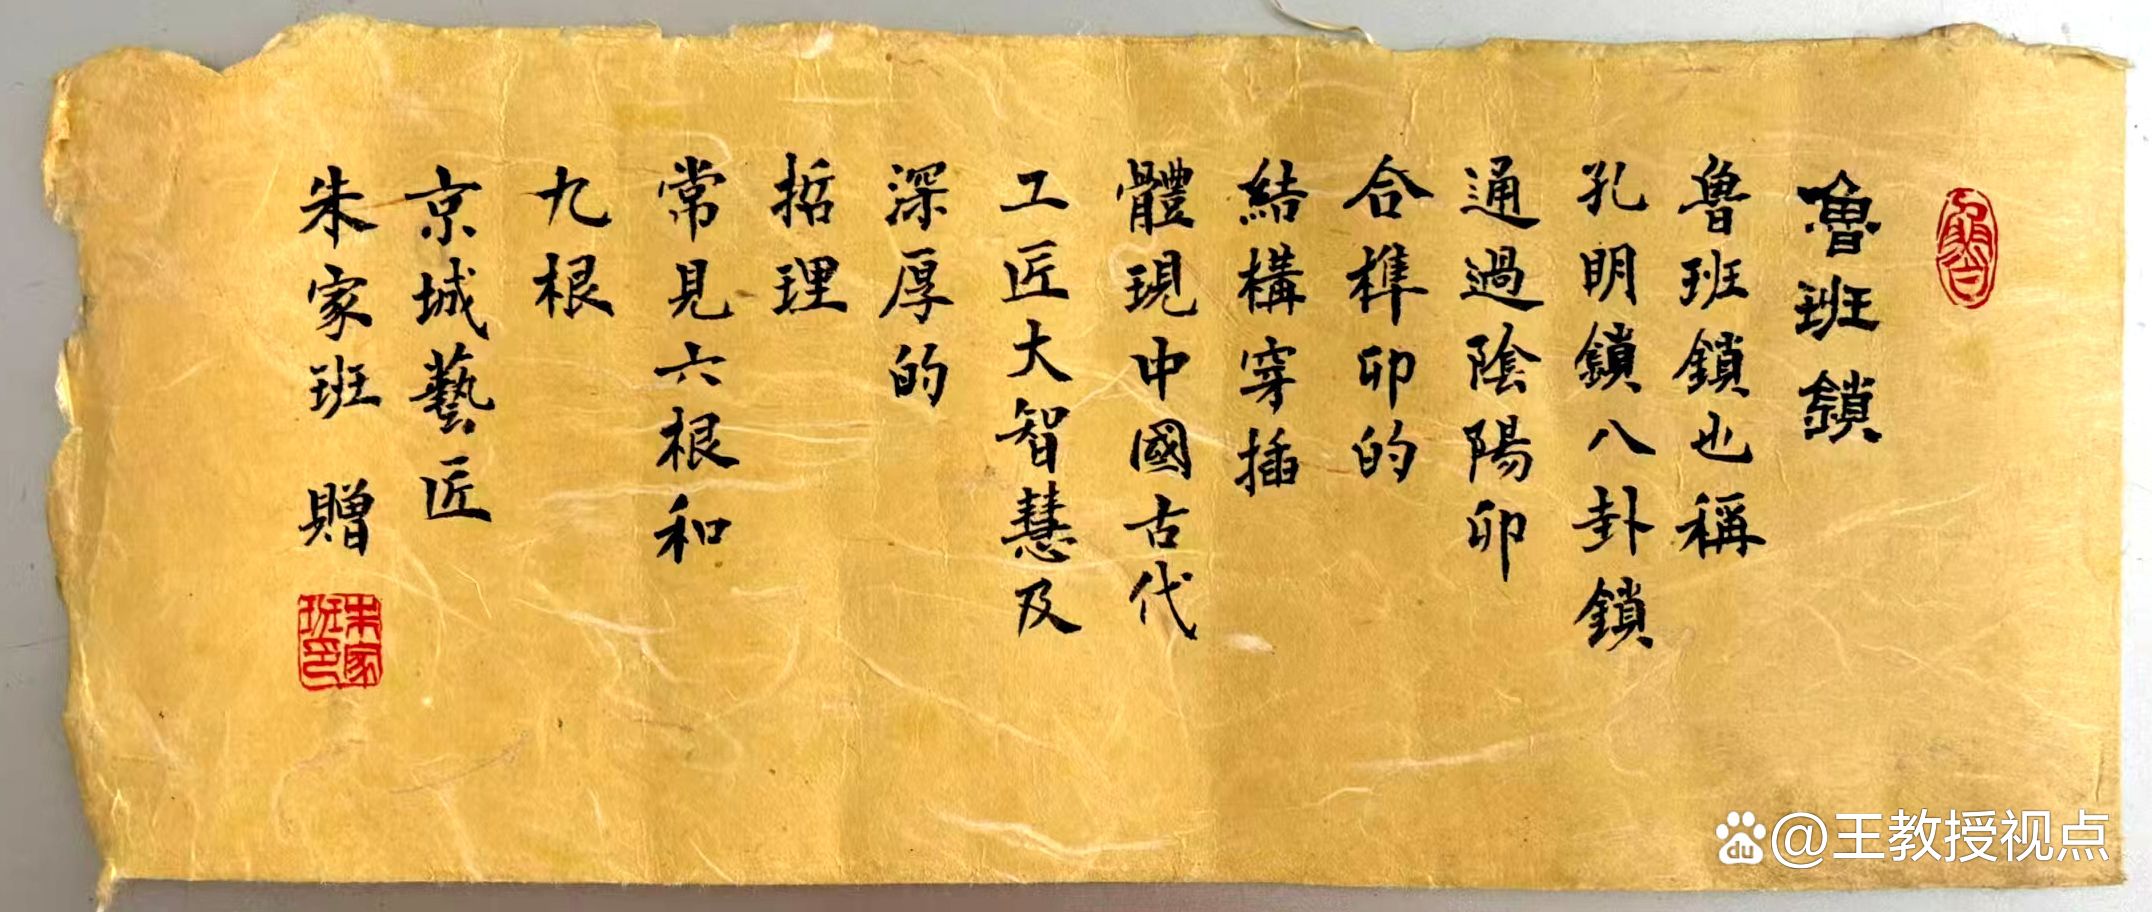 魯班鎖
魯班鎖也稱
孔明鎖八卦鎖
通過陰陽卯
合榫卯的
結構穿插
體現中國古代
工匠大智慧及
深厚的
哲理
常見六根和
九根
京城藝匠
朱家班 贈
朱家
班印
du @王教授视点